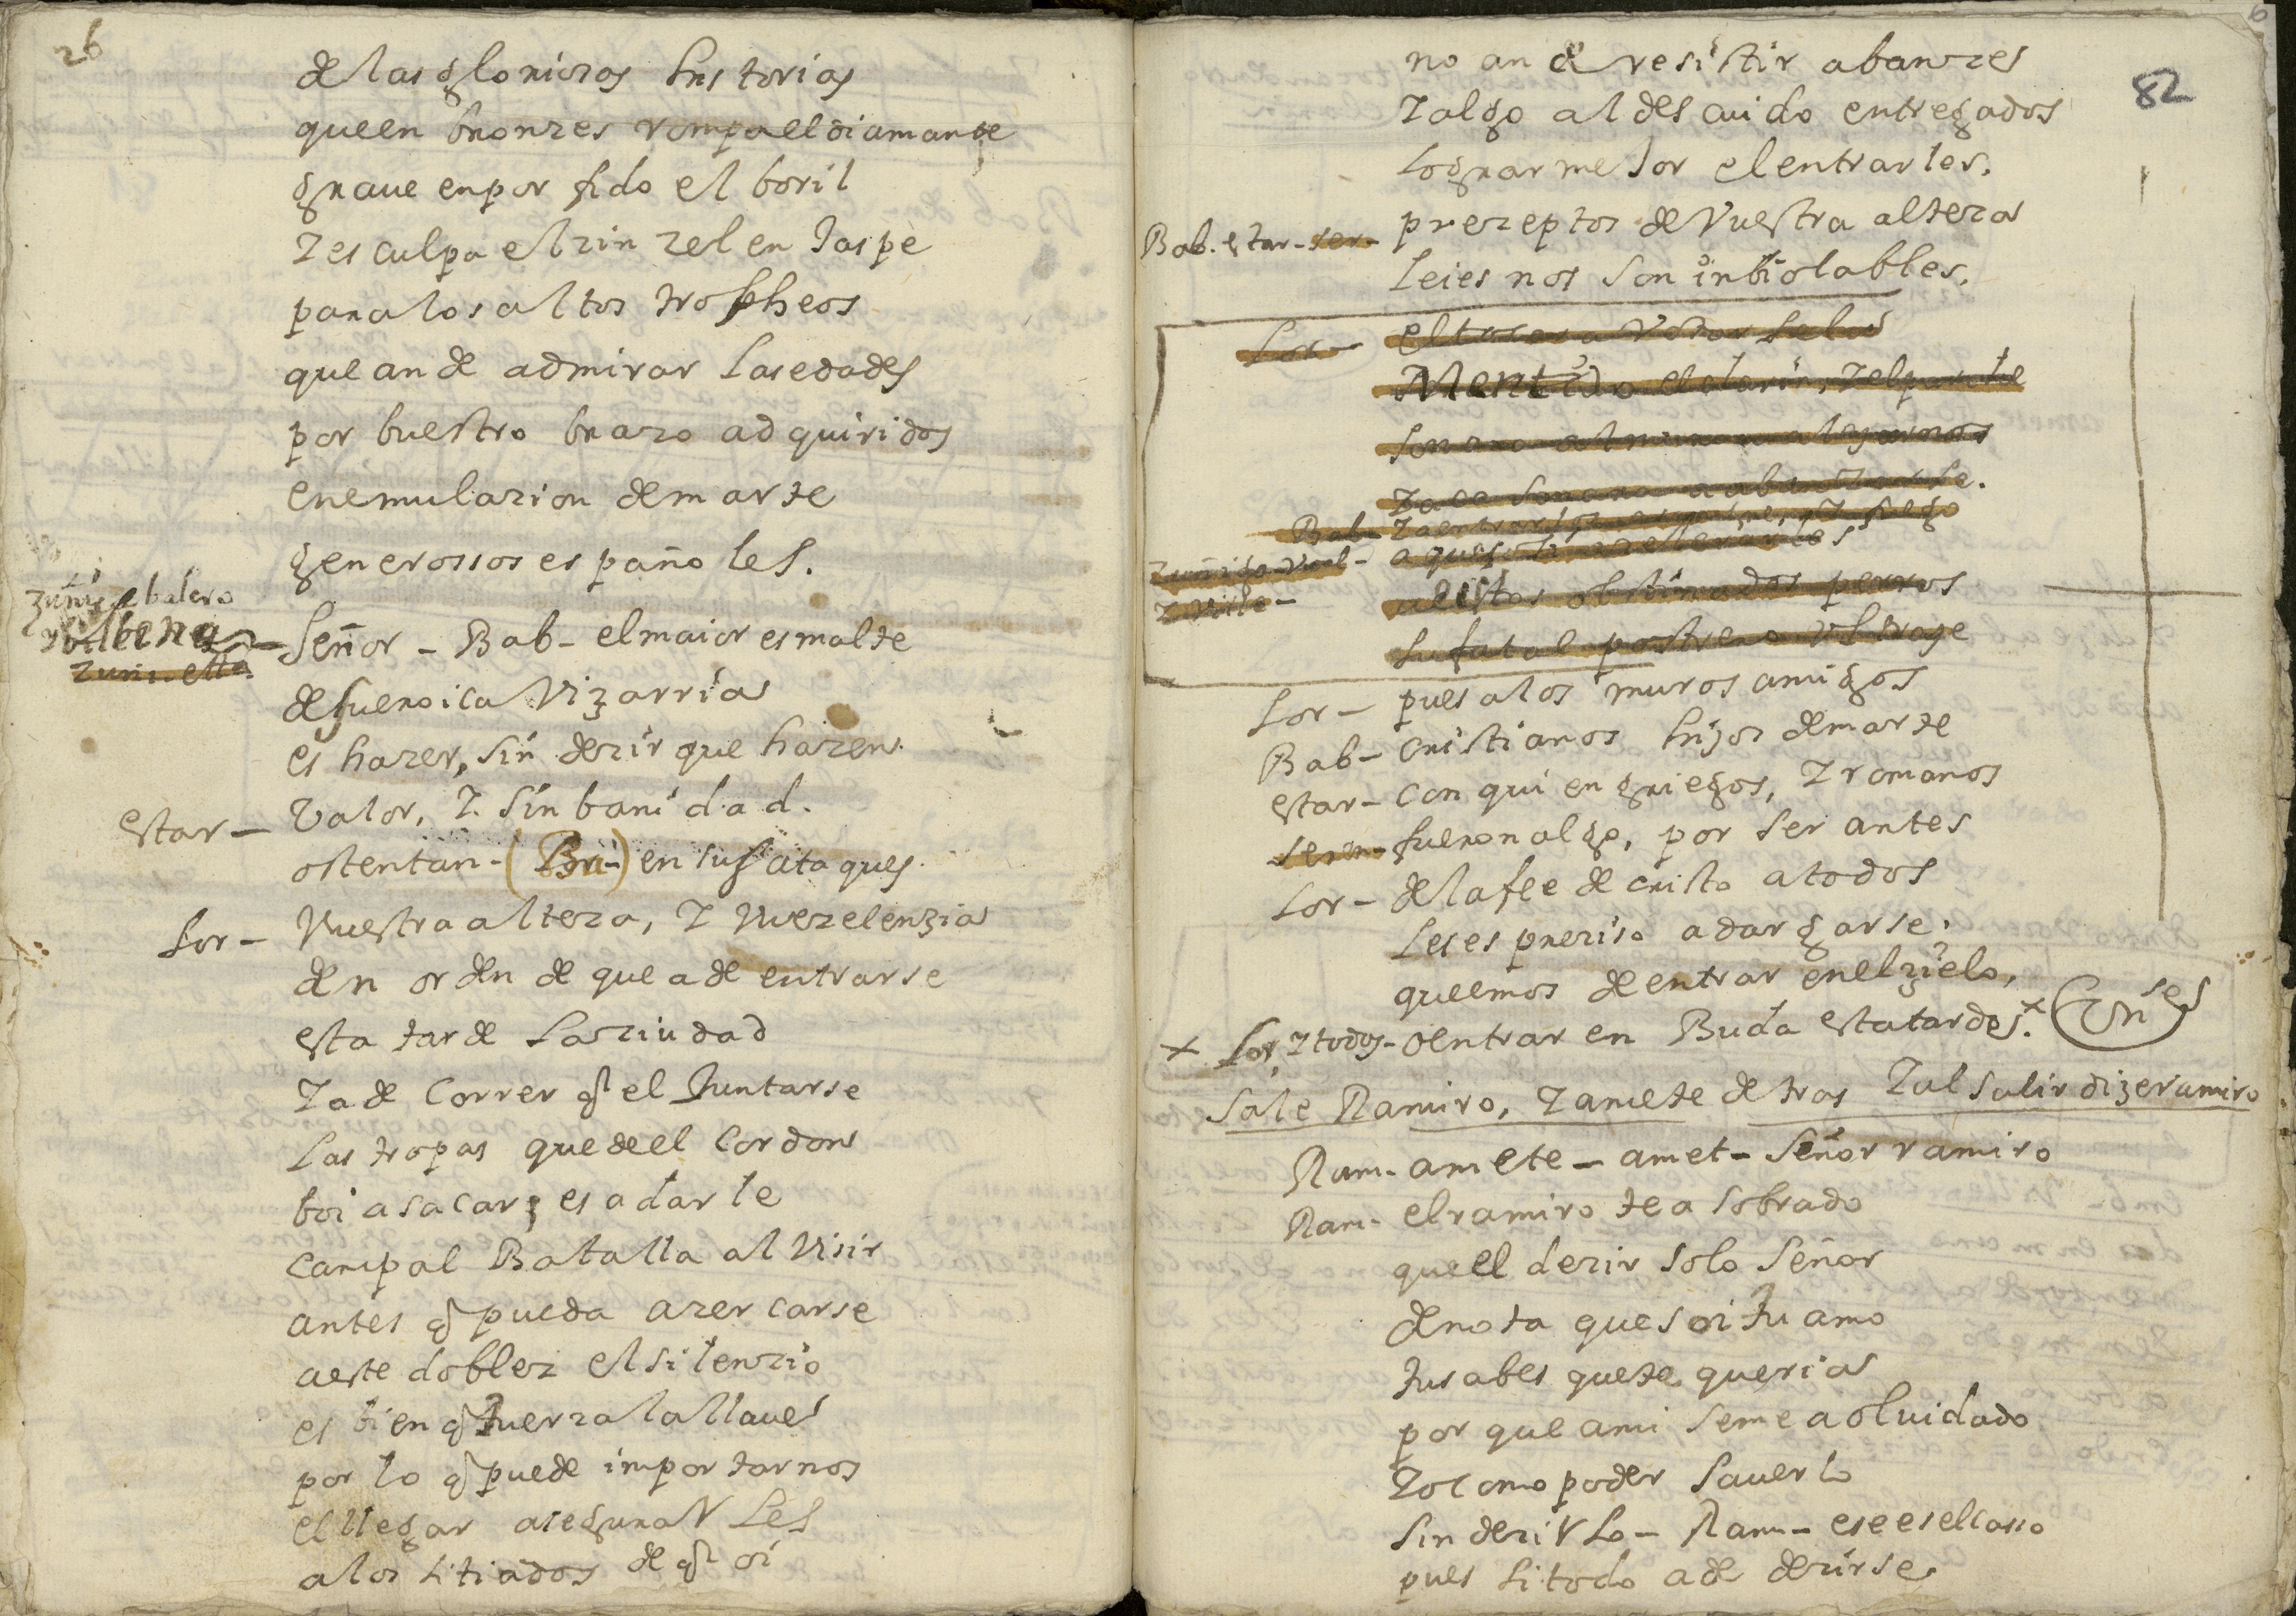 26
de las gloriozas historias
que en bronzes rompa el diamante
graue en porfido el boril
Z esculpa el zinzel en Jaspe
para los altos tropheos
que an de admirar las edades
por buestro brazo adquiridos
en emulazion de marte
generossos españoles.
Zuñig balero
y Villena - Señor - Bab - el maior esmalte
de su eroica Vizarria
es hazer, sin dezir que hazen
estar - Valor, Z sin banidad.
ostentan - (Bru-) en sus ataques
Lor - Vuestra alteza, Z Vuezelenzia
den orden de que a de entrarse
esta tarde La ziudad
Z a de Correr q el Juntarse
Las tropas que de el Cordon
boi a sacar, es a darle
campal Batalla al Visir
antes q pueda azercarse
a este doblez el silenzio
es bien q tuerza la llaue
por lo q puede importarnos
el llegar asegurarles
a los sitiados de q oi
82
no an de resistir abanzes
Z algo al descuido entregados
Lograr mejor el entrarles.
Bab. estar - ser - prezeptos de Vuestra alteza
Leies nos son inbiolables.
Lor -
Mentido el clarin, Z el parche
obstinados perros
su fatal postrero ultraje
Lor - pues a los muros amigos
Bab - cristianos hijos de marte
estar - con quien griegos, Z romanos
seren - fueron algo, por ser antes
Lor - de la fee de cristo a todos
Les es preziso adargarse.
que emos de entrar en el zielo,
x Lor, Z todos - o entrar en Buda esta tarde. x Vnse
Sale Ramiro, Z amete detras Z al salir dize ramiro
Ram - amete - amet - Señor ramiro
Ram - el ramiro te a sobrado
que el dezir solo señor
denota que soi tu amo
tu sabes que te queria
por que a mi se me a oluidado
Zo como poder sauerlo
sin dezirlo - Ram - ese es el caso
pues si todo a de dezirse